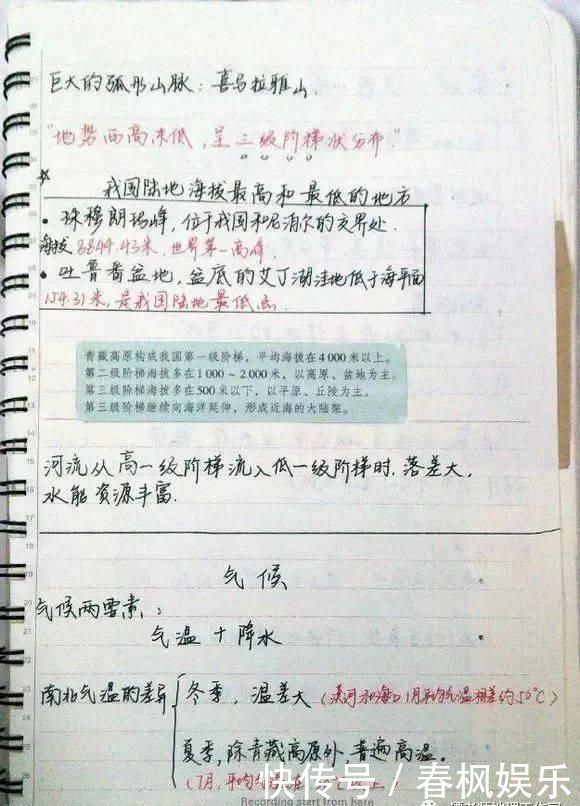 巨大的弧形山脉：喜马拉雅山.
"地势西高东低，呈三级阶梯状分布."
我国陆地海拔最高和最低的地方
• 珠穆朗玛峰，位于我国和尼泊尔的交界处.
海拔8844.43米，世界第一高峰.
• 吐鲁番盆地，盆底的艾丁湖洼地低于海平面
154.31米，是我国陆地最低点.
青藏高原构成我国第一级阶梯，平均海拔在4 000米以上。
第二级阶梯海拔多在1 000～2 000米，以高原、盆地为主。
第三级阶梯海拔多在500米以下，以平原、丘陵为主。
第三级阶梯继续向海洋延伸，形成近海的大陆架。
河流从高一级阶梯流入低一级阶梯时，落差大，
水能资源丰富.
气候
气候两要素：
气温＋降水
南北气温的差异
冬季，温差大（漠河和海口1月平均气温相差约50℃）
夏季，除青藏高原外 普遍高温.
（7月，平均气
快传号／春风娱乐
Recording start from here